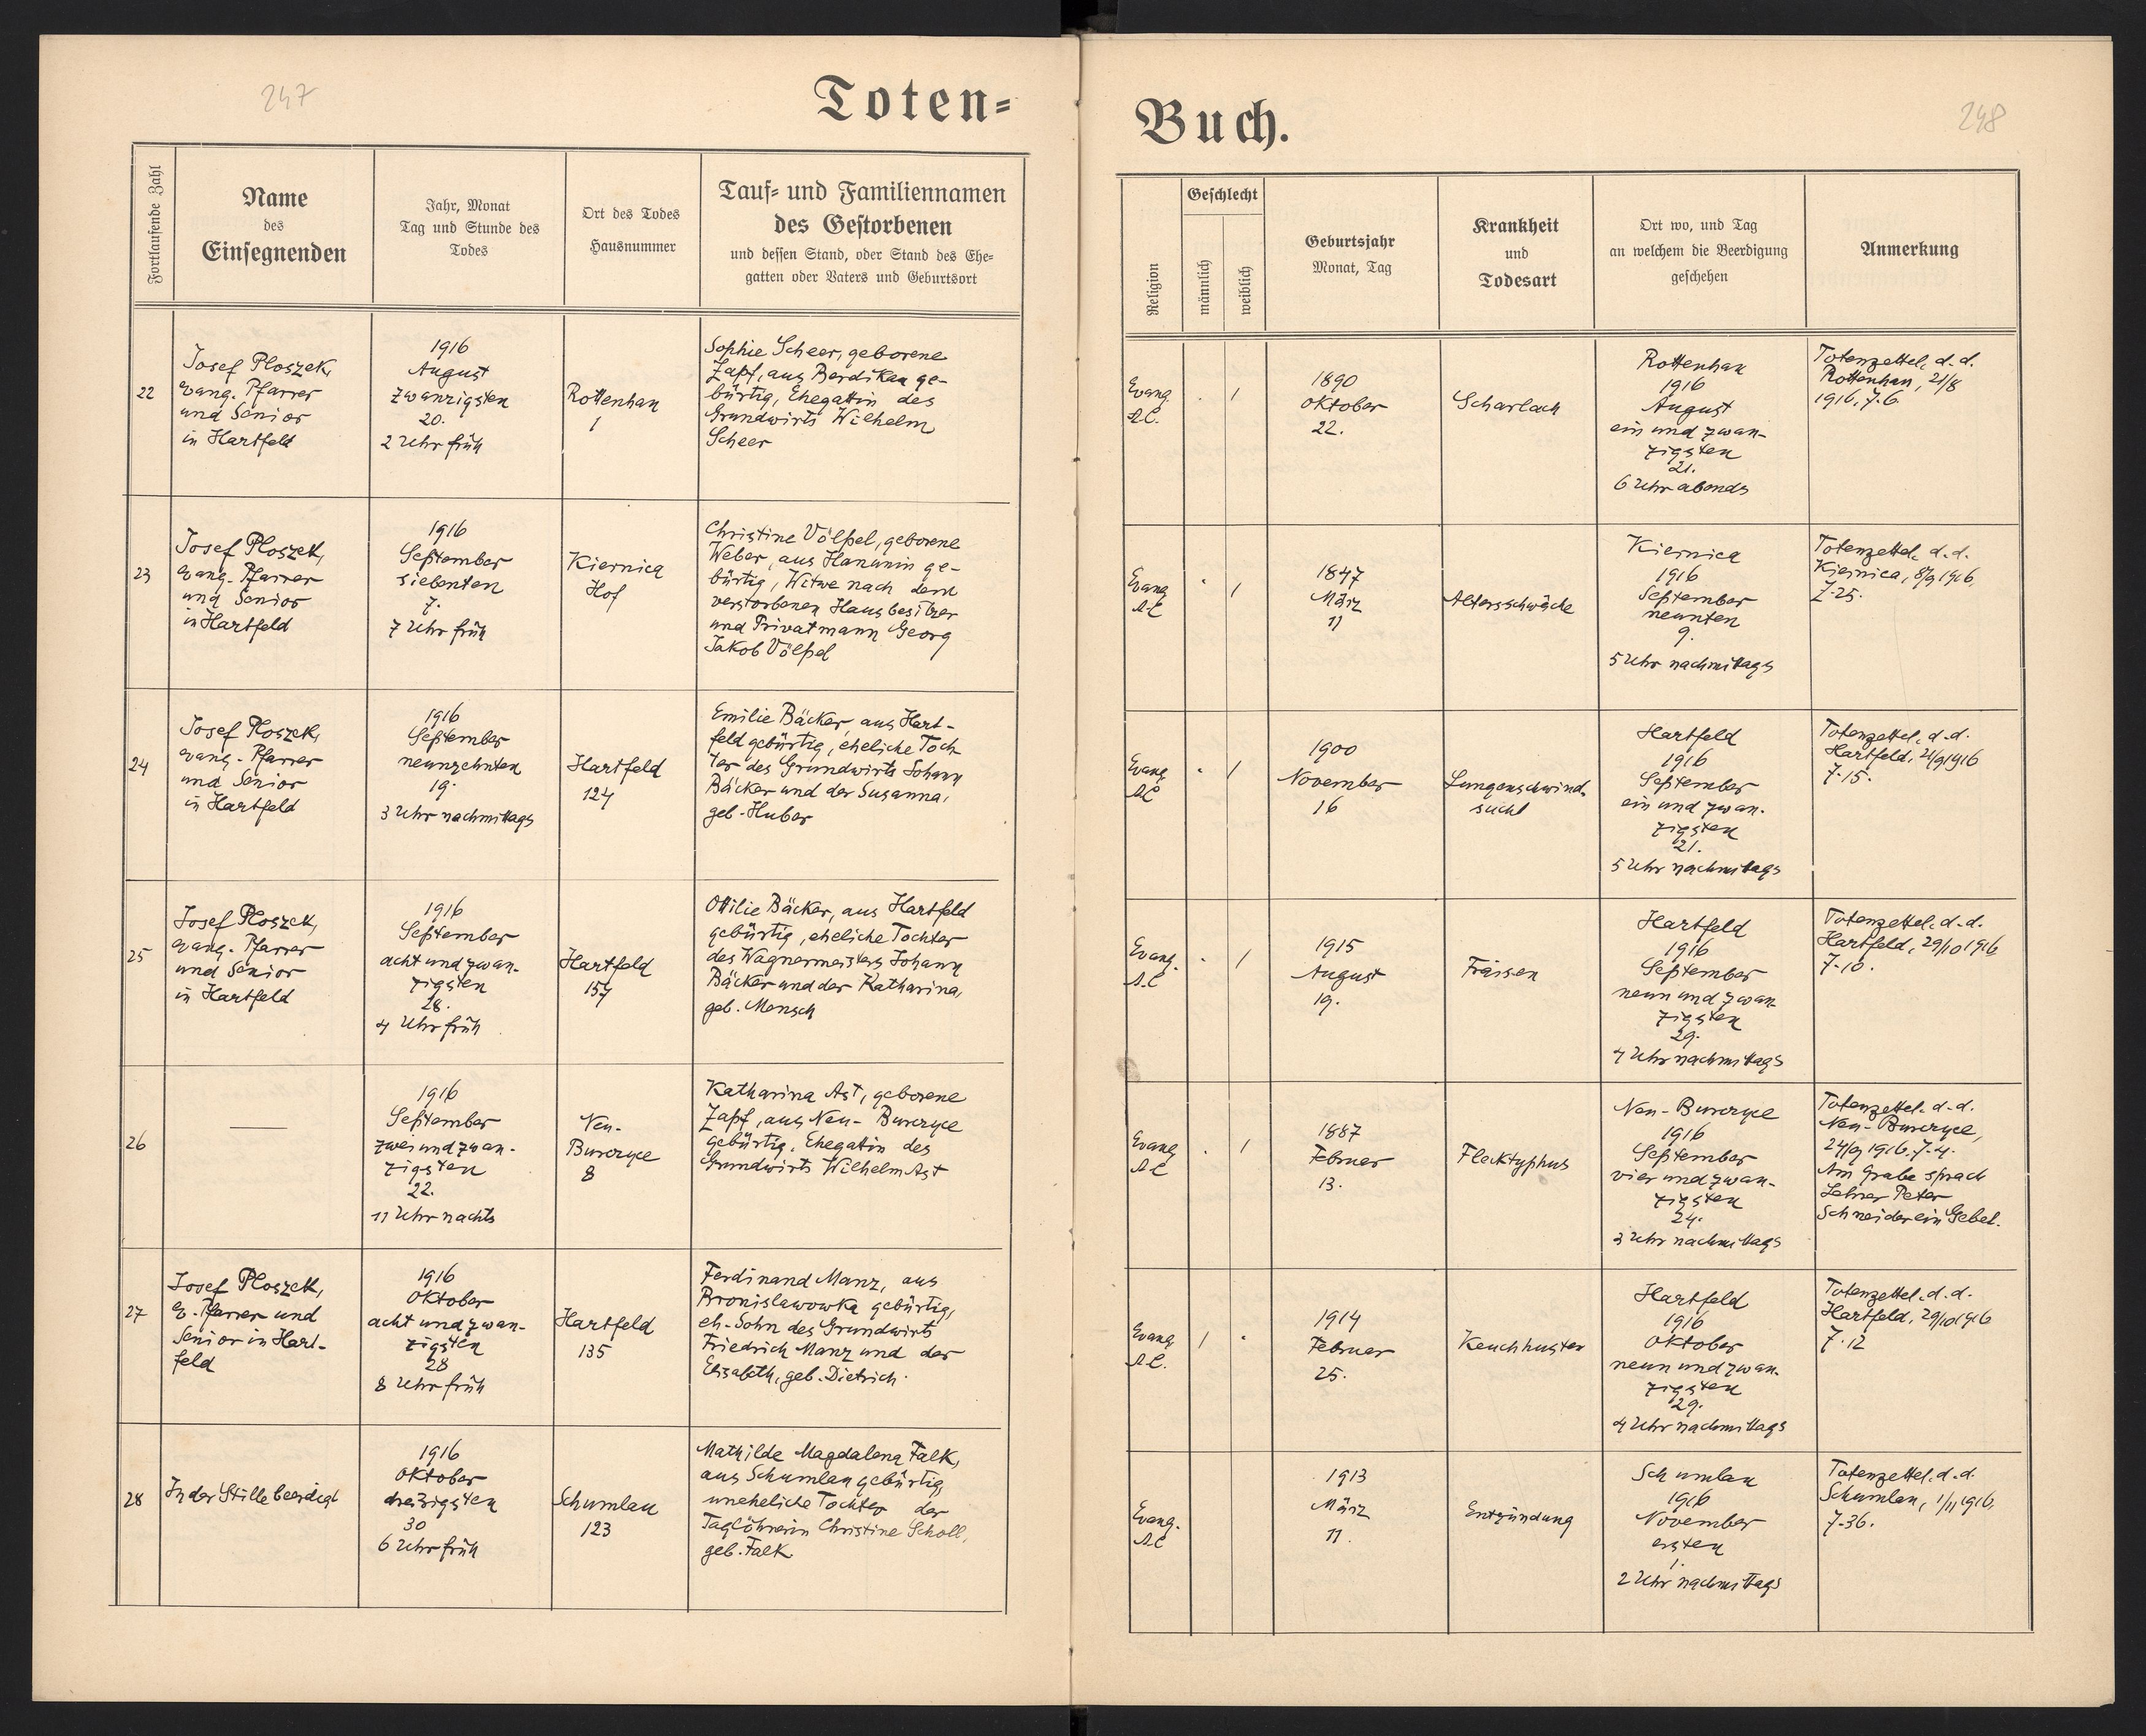 247
Toten=
Fortlaufende Zahl
Name
des
Einsegnenden
Jahr, Monat
Tag und Stunde des
Todes
Ort des Todes
Hausnummer
Tauf= und Familiennamen
des Gestorbenen
und dessen Stand, oder Stand des Ehe=
gatten oder Vaters und Geburtsort
22
Josef Ploszek,
evang. Pfarrer
und Senior
in Hartfeld
1916
August
zwanzigsten
20.
2 Uhr früh
Rottenhan
1
Sophie Scheer, geborene
Zapf, aus Berdikau ge-
bürtig, Ehegattin des
Grundwirts Wilhelm
Scheer
23
Josef Ploszek,
evang. Pfarrer
und Senior
in Hartfeld
1916
September
siebenten
7.
7 Uhr früh
Kiernica
Hof
Christine Völpel, geborene
Weber, aus Hanunin ge-
bürtig, Witwe nach dem
verstorbenen Hausbesitzer
und Privatmann Georg
Jakob Völpel
24
Josef Ploszek,
evang. Pfarrer
und Senior
in Hartfeld
1916
September
neunzehnten
19.
3 Uhr nachmittags
Hartfeld
124
Emilie Bäcker, aus Hart-
feld gebürtig, eheliche Toch
ter des Grundwirts Johann
Bäcker und der Susanna,
geb. Huber
25
Josef Ploszek,
evang. Pfarrer
und Senior
in Hartfeld
1916
September
acht und zwan-
zigsten
28.
4 Uhr früh
Hartfeld
157
Ottilie Bäcker, aus Hartfeld
gebürtig, eheliche Tochter
des Wagnermeisters Johann
Bäcker und der Katharina,
geb. Mensch
26
—
1916
September
zwei und zwan-
zigsten
22.
11 Uhr nachts
Neu-
Burczyce
8
Katharina Ast, geborene
Zapf, aus Neu-Burczyce
gebürtig, Ehegattin des
Grundwirts Wilhelm Ast
27
Josef Ploszek,
ev. Pfarrer und
Senior in Hart-
feld
1916
Oktober
acht und zwan-
zigsten
28
8 Uhr früh
Hartfeld
135
Ferdinand Manz, aus
Bronislawowka gebürtig,
eh. Sohn des Grundwirts
Friedrich Manz und der
Elisabeth, geb. Dietrich.
28
In der Stille beerdigt
1916
Oktober
dreißigsten
30
6 Uhr früh
Schumlau
123
Mathilde Magdalena Falk,
aus Schumlau gebürtig,
uneheliche Tochter der
Taglöhnerin Christine Scholl,
geb. Falk
Buch.
248
Religion
Geschlecht
männlich
weiblich
Geburtsjahr
Monat, Tag
Krankheit
und
Todesart
Ort wo, und Tag
an welchem die Beerdigung
geschehen
Anmerkung
Evang.
A.C.
.
1
1890
Oktober
22.
Scharlach
Rottenhan
1916
August
ein und zwan-
zigsten
21.
6 Uhr abends
Totenzettel, d. d.
Rottenhan, 21/8
1916, Z. 6.
Evang
A.C
.
1
1847
März
11
Altersschwäche
Kiernica
1916
September
neunten
9.
5 Uhr nachmittags
Totenzettel, d. d.
Kiernica, 8/9 1916,
Z. 25.
Evang
A.C
.
1
1900
November
16
Lungenschwind-
sucht
Hartfeld
1916
September
ein und zwan-
zigsten
21.
5 Uhr nachmittags
Totenzettel, d. d.
Hartfeld, 21/9 1916
Z. 15.
Evang.
A.C
.
1
1915
August
19.
Fraisen
Hartfeld
1916
September
neun und zwan
zigsten
29.
4 Uhr nachmittags
Totenzettel, d. d.
Hartfeld, 29/10 1916
Z. 10.
Evang
A.C
.
1
1887
Februar
13.
Flecktyphus
Neu-Burczyce
1916
September
vier und zwan-
zigsten
24.
3 Uhr nachmittags
Totenzettel, d. d.
Neu-Burczyce,
24/9 1916, Z. 4.
Am Grabe sprach
Lehrer Peter
Schneider ein Gebet.
Evang.
A.C.
1
.
1914
Februar
25.
Keuchhusten
Hartfeld
1916
Oktober
neun und zwan-
zigsten
29.
4 Uhr nachmittags
Totenzettel, d. d.
Hartfeld, 29/10 1916
Z. 12
Evang.
A.C
1913
März
11.
Entzündung
Schumlau
1916
November
ersten
1.
2 Uhr nachmittags
Totenzettel, d. d.
Schumlau, 1/11 1916,
Z. 36.